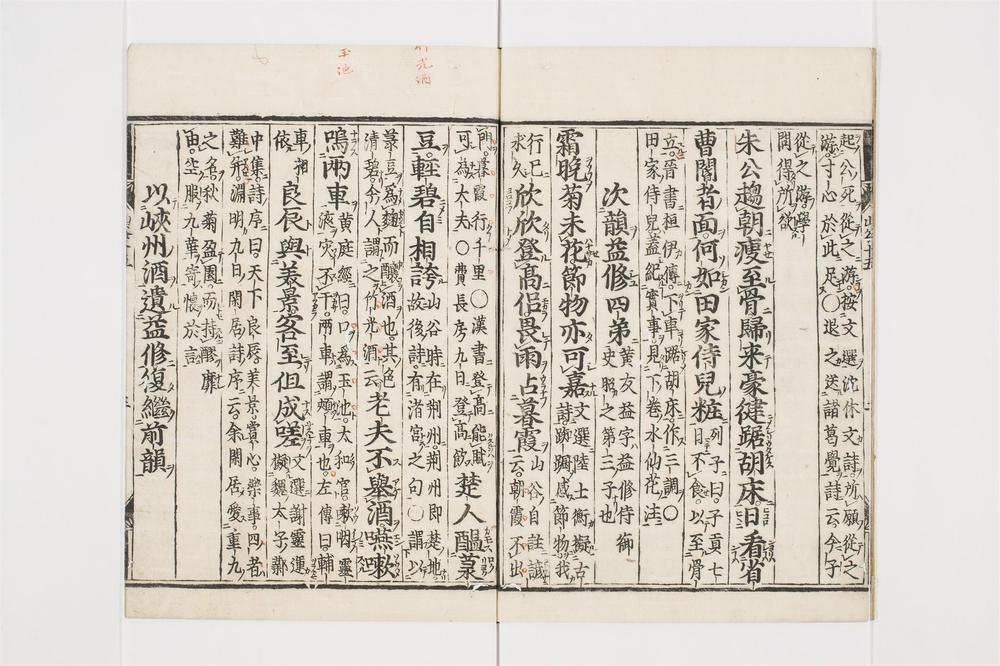 起公死從之游。按文選沈休文詩所願從之
游。寸心於此足。○退之送諸葛覺詩云今子
從之游學
問得所欲
朱公趨朝瘦至骨歸来豪健踞胡床。日看省
曹閣者面。何如田家侍兒粧
列子曰。子貢七
日不食。以至骨
立。晉書桓伊傳。下車踞胡床。作三調○
田家侍兒蓋紀實事。見下卷水仙花注
次韻益修四弟
黄友益字益修侍御
史照之第三子也
霜晩菊未花節物亦可嘉
文選陸士衡擬古
詩踟躕感節物。我
行已
求久
欣欣登髙侣畏雨占暮霞
山谷自註諺
云。朝霞不出
門。暮霞行千里○漢書登髙能賦
可為大夫○費長房九日登髙飲
楚人醖菉
豆。輕碧自相誇
山谷時在荆州。荆州即楚地。
故後詩有渚宫之句○謂以
菉豆爲麴而釀酒也。其色
清碧。今人謂之竹光酒云
老夫不舉酒嚥嗽
鳴兩車
黄庭經曰。口為玉池。太和官。嗽咽靈
液灾不干。兩車謂頰車也。左傳曰。輔
車相
依
良辰與美景客至但成嗟
文選謝靈運
擬魏太子鄴
中集詩序曰。天下良辰美景。賞心。樂事。四者
難并。淵明九日閑居詩序云。余閑居愛重九
之名。秋菊盈園。而持醪靡
由。空服九華寄懷於言
以峽州酒遺益修復繼前韻
玉池
竹光酒